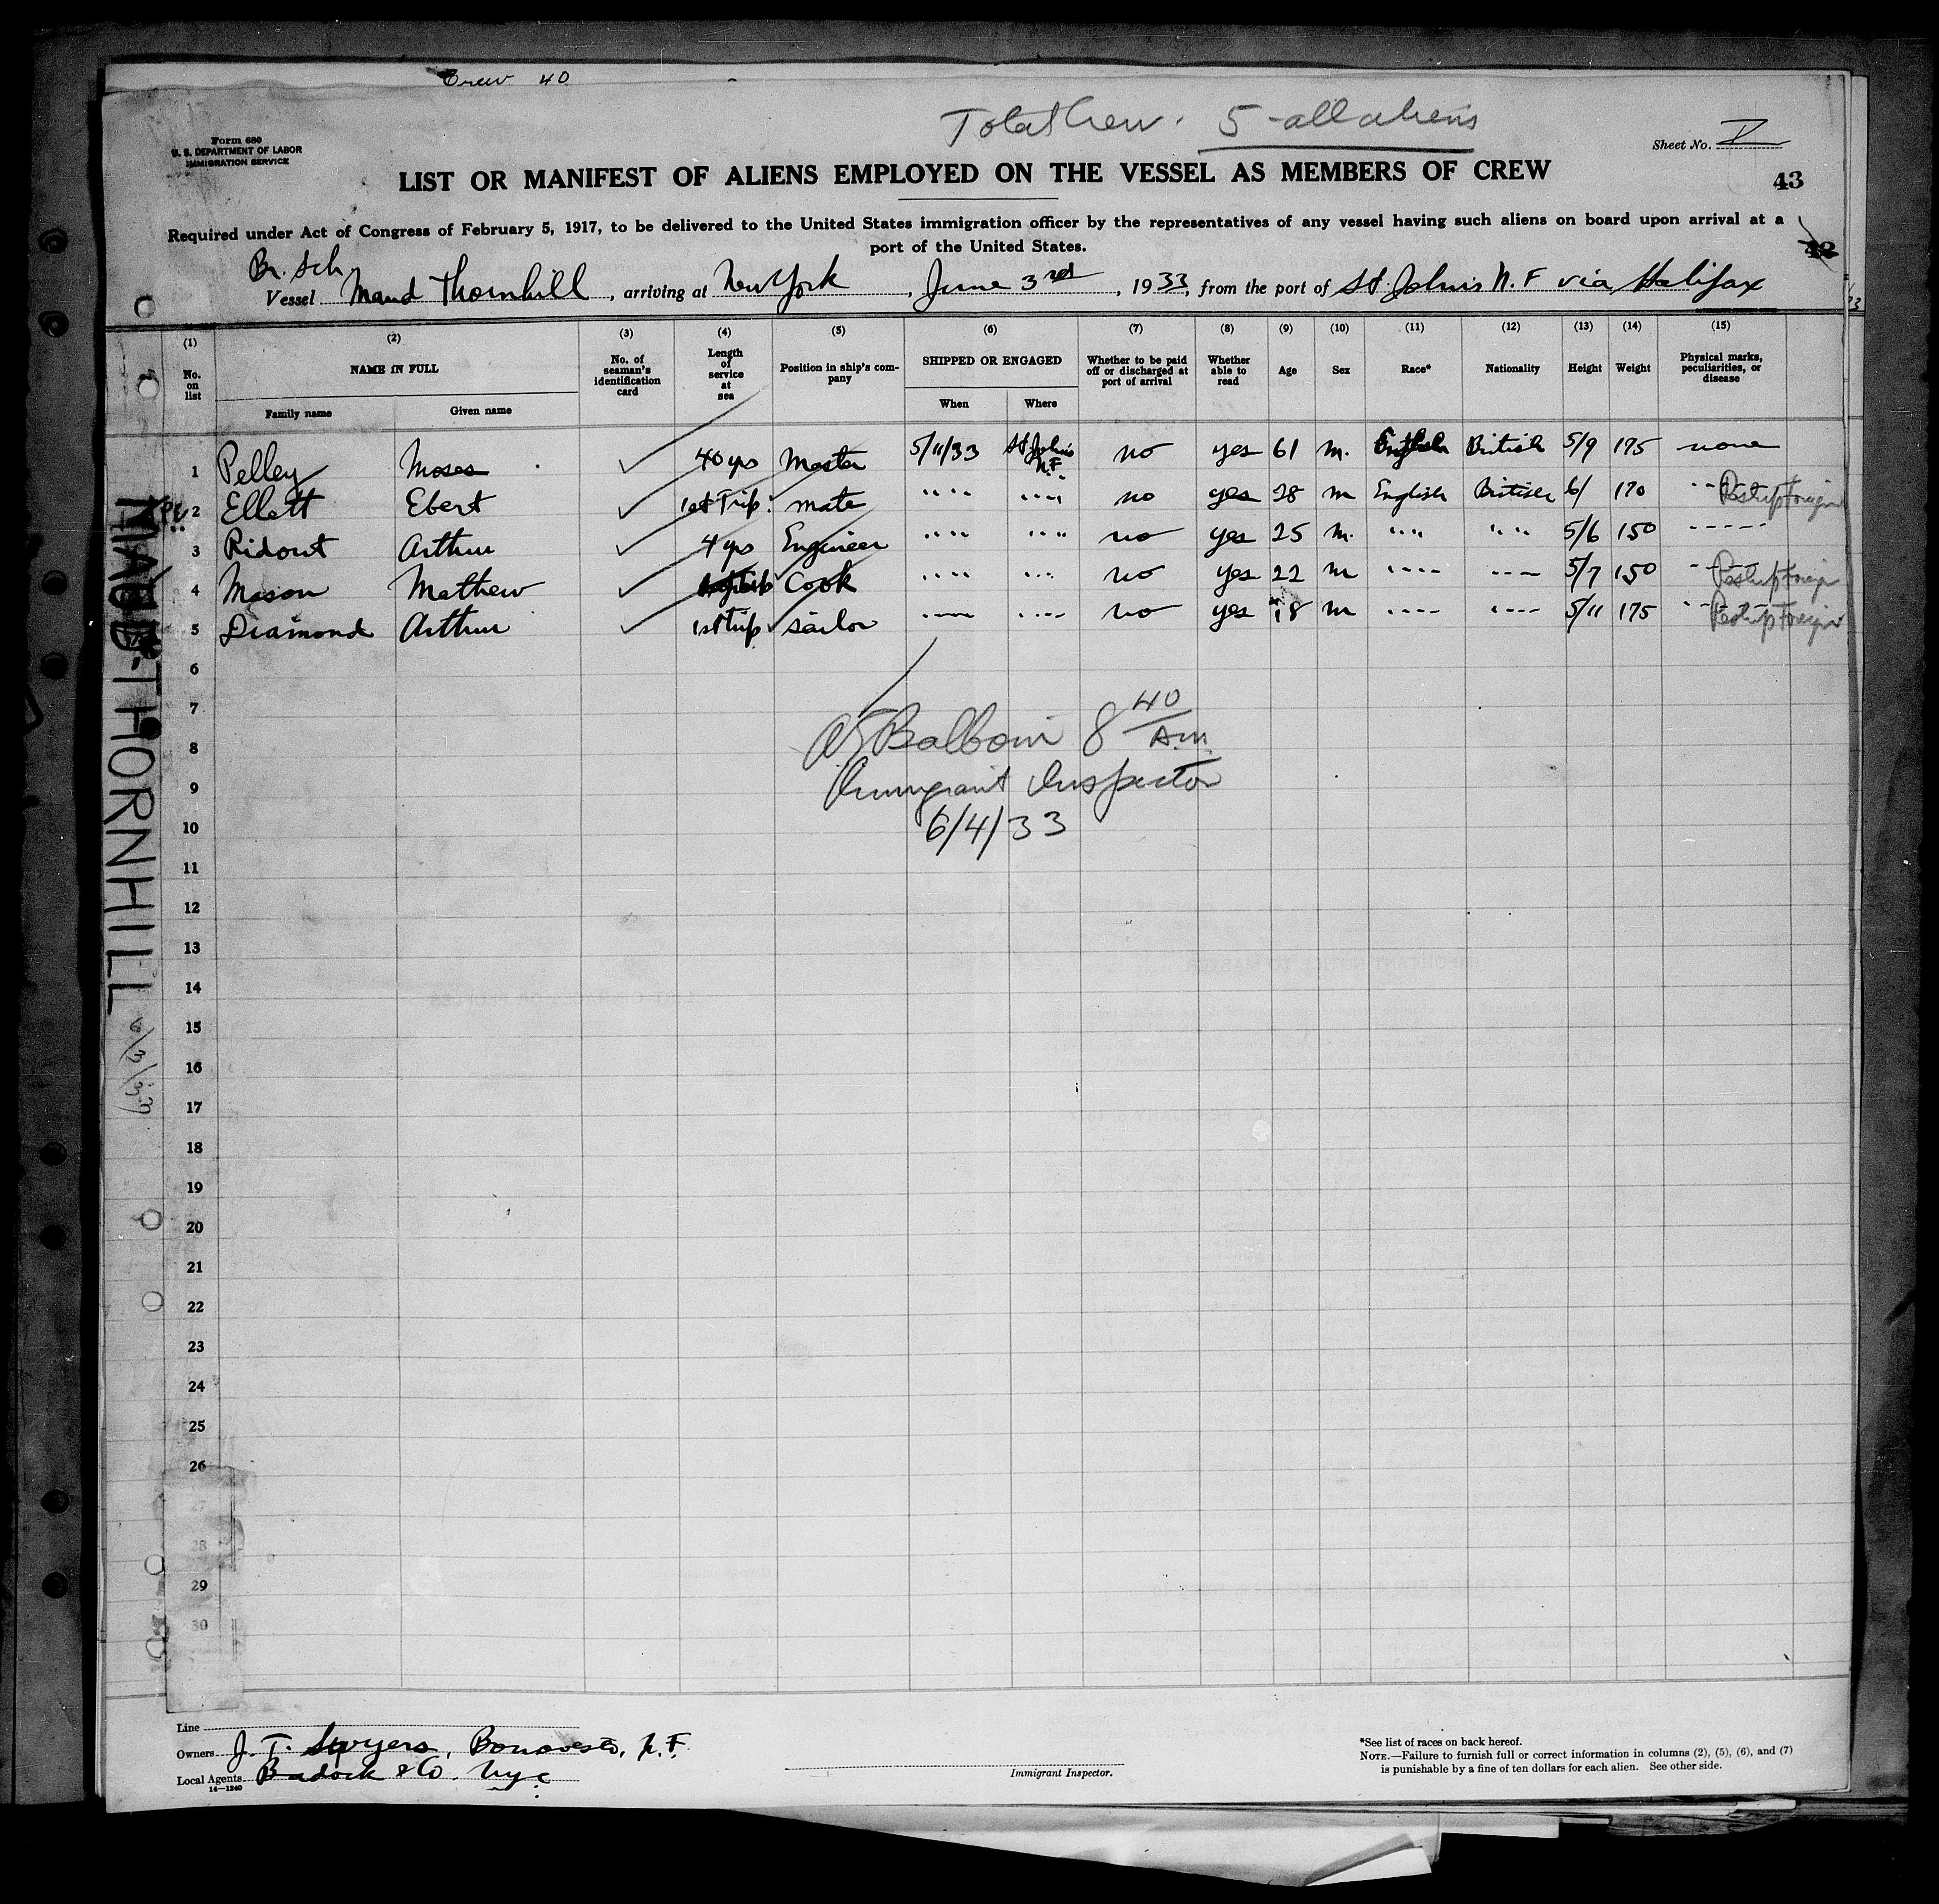 Crew 40
Total Crew. 5 - all aliens
Form 680
U. S. DEPARTMENT OF LABOR
IMMIGRATION SERVICE
Sheet No. I
LIST OR MANIFEST OF ALIENS EMPLOYED ON THE VESSEL AS MEMBERS OF CREW
43
Required under Act of Congress of February 5, 1917, to be delivered to the United States immigration officer by the representatives of any vessel having such aliens on board upon arrival at a
port of the United States.
42
Br. Sch.
Vessel Maud Thornhill, arriving at New York, June 3rd, 1933, from the port of St. John's N.F via Halifax
(1) (2) (3) (4) (5) (6) (7) (8) (9) (10) (11) (12) (13) (14) (15)
No. on list NAME IN FULL No. of seaman's identification card Length of service at sea Position in ship's company SHIPPED OR ENGAGED Whether to be paid off or discharged at port of arrival Whether able to read Age Sex Race* Nationality Height Weight Physical marks, peculiarities, or disease
Family name Given name When Where
1 Pelley Moses 40 yrs Master 5/11/33 St John's N.F no yes 61 m. English British 5/9 175 none
2 Ellett Ebert 1st Trip. mate " " " " no yes 28 m English British 6/ 170 " "
3 Ridout Arthur 4 yrs Engineer " " " " no yes 25 m. " " " " 5/6 150 " "
4 Mason Mathew Cook " " " " no yes 22 m " " " " 5/7 150 " "
5 Diamond Arthur 1st trip sailor " " " " no yes 18 m " " " " 5/11 175 " "
6
7
8
9
10
11
12
13
14
15
16
17
18
19
20
21
22
23
24
25
26
27
28
29
30
8 40 A.M.
Immigrant Inspector
6/4/33
MAUD THORNHILL
6/3/33
Line
Owners J. T. Swyers, Bonavista, N.F.
Local Agents Badock & Co. NYC
14—1240
Immigrant Inspector.
*See list of races on back hereof.
NOTE.—Failure to furnish full or correct information in columns (2), (5), (6), and (7)
is punishable by a fine of ten dollars for each alien. See other side.